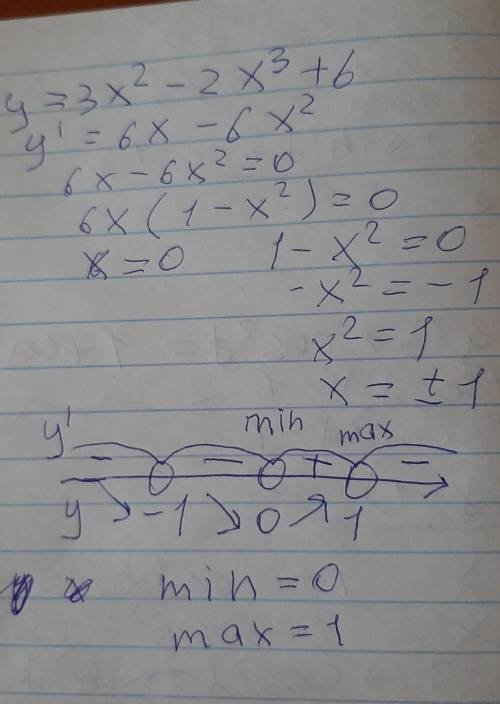 y = 3x² - 2x³ + 6
y' = 6x - 6x²
6x - 6x² = 0
6x(1 - x²) = 0
x = 0 1 - x² = 0
-x² = -1
x² = 1
x = ± 1
y' min max
- - + -
y ↘ -1 ↘ 0 ↗ 1
x min = 0
max = 1